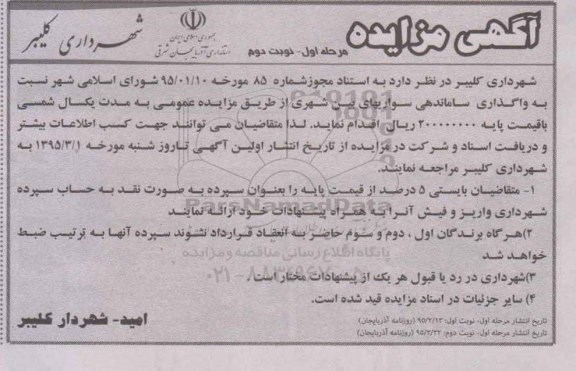 آگهی مزایده
مرحله اول- نوبت دوم
جمهوری اسلامی ایران
استانداری آذربایجان شرقی
شهرداری کلیبر
شهرداری کلیبر در نظر دارد به استناد مجوزشماره ۸۵ مورخه ۹۵/۰۱/۱۰ شورای اسلامی شهر نسبت
به واگذاری ساماندهی سواریهای بین شهری از طریق مزایده عمومی به مدت یکسال شمسی
باقیمت پایه ۲۰۰۰۰۰۰۰۰ ریال اقدام نماید. لذا متقاضیان می توانند جهت کسب اطلاعات بیشتر
و دریافت اسناد و شرکت در مزایده از تاریخ انتشار اولین آگهی تاروز شنبه مورخه ۱۳۹۵/۳/۱ به
شهرداری کلیبر مراجعه نمایند.
۱- متقاضیان بایستی ۵ درصد از قیمت پایه را بعنوان سپرده به صورت نقد به حساب سپرده
شهرداری واریز و فیش آنرا به همراه پیشنهادات خود ارائه نمایند
۲)هرگاه برندگان اول ، دوم و سوم حاضر به انعقاد قرارداد نشوند سپرده آنها به ترتیب ضبط
خواهد شد
۳)شهرداری در رد یا قبول هر یک از پیشنهادات مختار است .
۴) سایر جزئیات در اسناد مزایده قید شده است.
امید- شهردار کلیبر
تاریخ انتشار مرحله اول- نوبت اول: ۹۵/۲/۱۳ (روزنامه آذربایجان)
تاریخ انتشار مرحله اول- نوبت دوم: ۹۵/۲/۲۲ (روزنامه آذربایجان)
ParsNamadData
پایگاه اطلاع رسانی مناقصه و مزایده